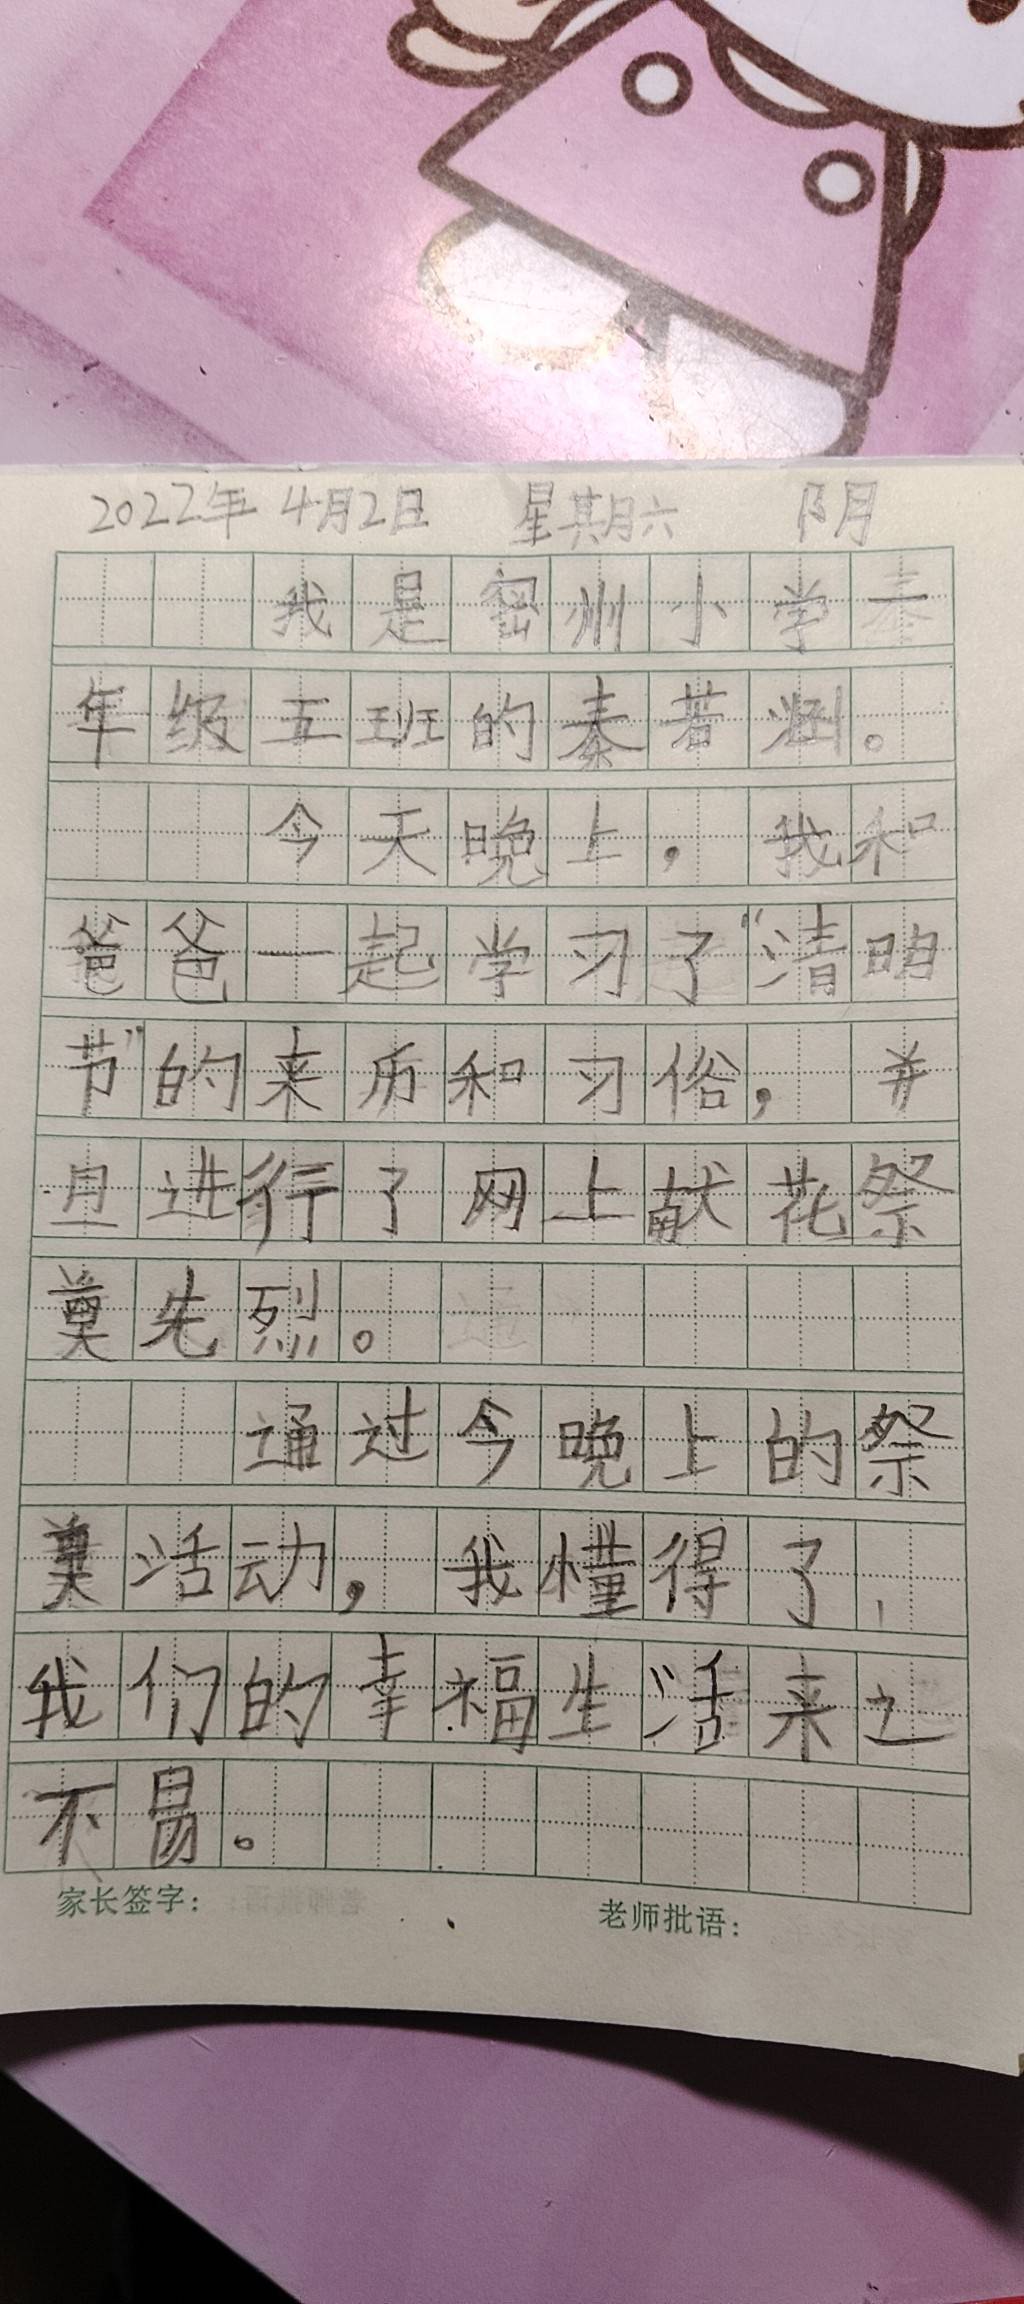 2022年 4月2日 星期六 阴
我是密州小学一
年级五班的秦若涵。
今天晚上，我和
爸爸一起学习了“清明
节”的来历和习俗，并
且进行了网上献花祭
奠先烈。
通过今晚上的祭
奠活动，我懂得了，
我们的幸福生活来之
不易。
家长签字： 老师批语：